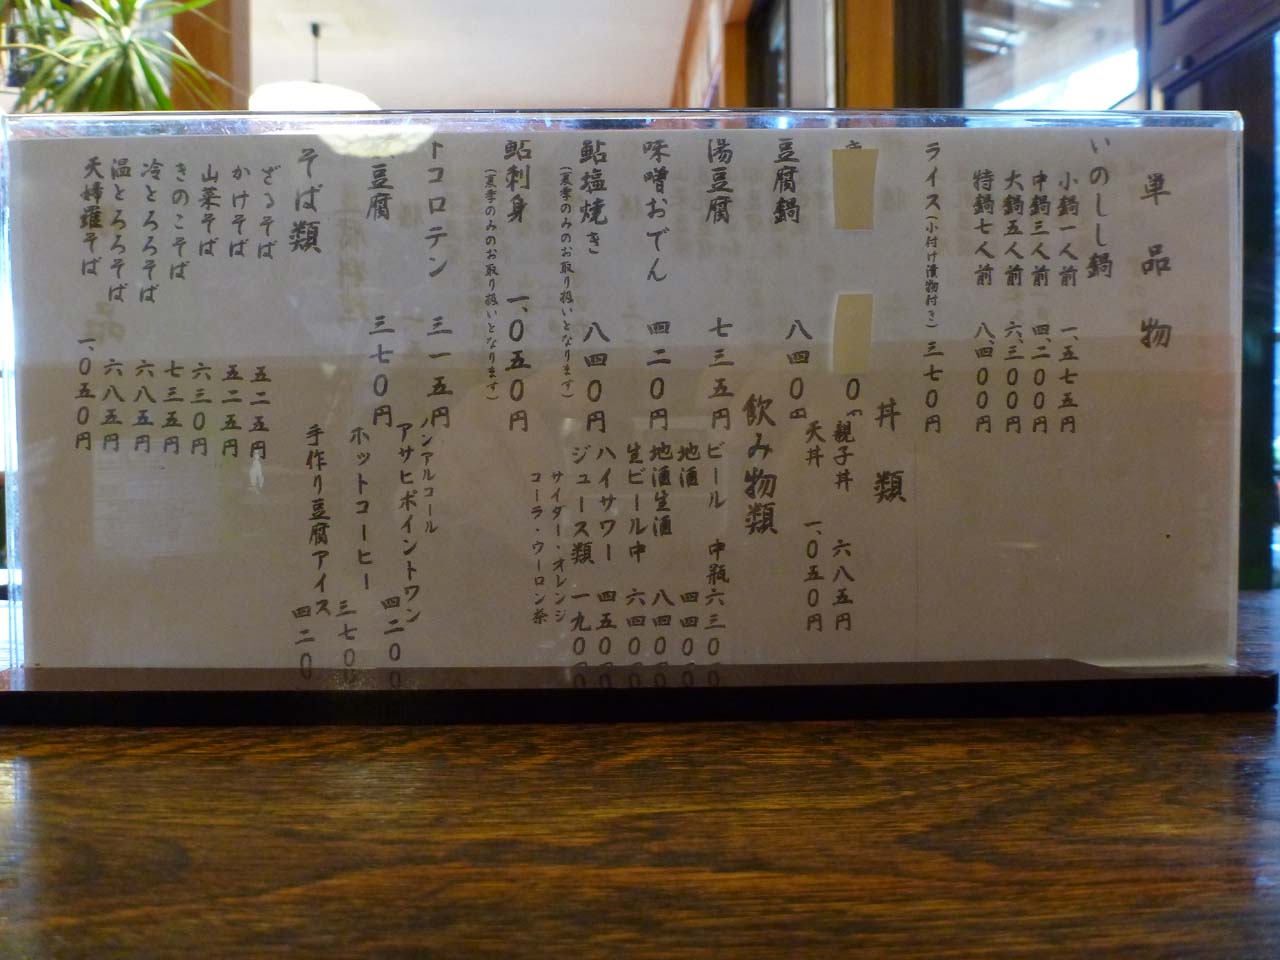 単品物
いのしし鍋
小鍋一人前 一、五七五円
中鍋三人前 四、二〇〇円
大鍋五人前 六、三〇〇円
特鍋七人前 八、四〇〇円
ライス(小付け漬物付き) 三七〇円
豆腐鍋 八四〇円
湯豆腐 七三五円
味噌おでん 四二〇円
鮎塩焼き 八四〇円
(夏季のみのお取り扱いとなります)
鮎刺身 一、〇五〇円
(夏季のみのお取り扱いとなります)
トコロテン 三一五円
豆腐 三七〇円
そば類
ざるそば 五二五円
かけそば 五二五円
山菜そば 六三〇円
きのこそば 七三五円
冷とろろそば 六八五円
温とろろそば 六八五円
天婦羅そば 一、〇五〇円
丼類
親子丼 六八五円
天丼 一、〇五〇円
飲み物類
ビール 中瓶 六三〇
地酒 四四〇
地酒生酒 八四〇
生ビール中 六四〇
ハイサワー 四五〇
ジュース類 一九〇
サイダー・オレンジ
コーラ・ウーロン茶
ノンアルコール
アサヒポイントワン 四二〇
ホットコーヒー 三七〇
手作り豆腐アイス 四二〇